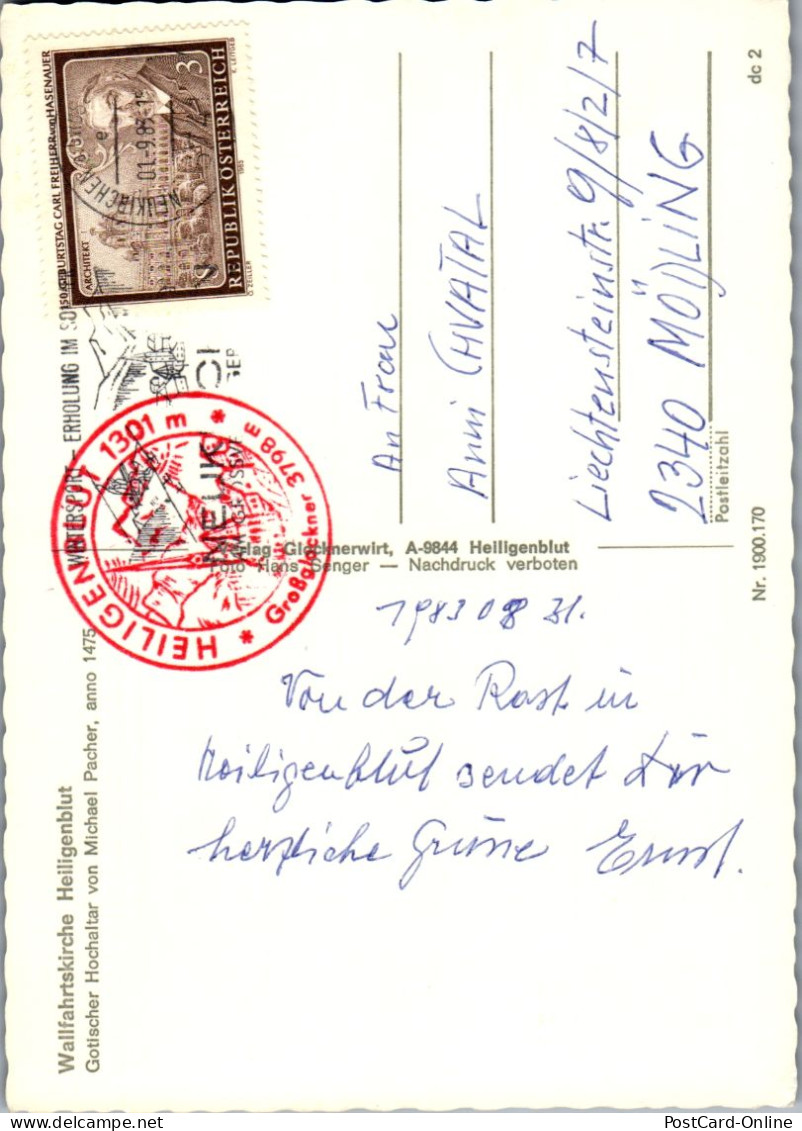 150. GEBURTSTAG CARL FREIHERR VON HASENAUER
ARCHITEKT
REPUBLIK ÖSTERREICH
3
1983
NEUKIRCHEN
01.-9.83
WINTERSPORT - ERHOLUNG IM
HEILIGENBLUT 1301 m
Großglockner 3798 m
An Frau
Anni CHVATAL
Liechtensteinstr. 9/8/2/7
2340 MÖDLING
Postleitzahl
dc 2
Nr. 1900.170
Verlag Glocknerwirt, A-9844 Heiligenblut
Foto Hans Senger — Nachdruck verboten
1983 08 31.
Von der Rast in
Heiligenblut sendet Dir
herzliche Grüsse Ernst.
Wallfahrtskirche Heiligenblut
Gotischer Hochaltar von Michael Pacher, anno 1475
PostCard-Online